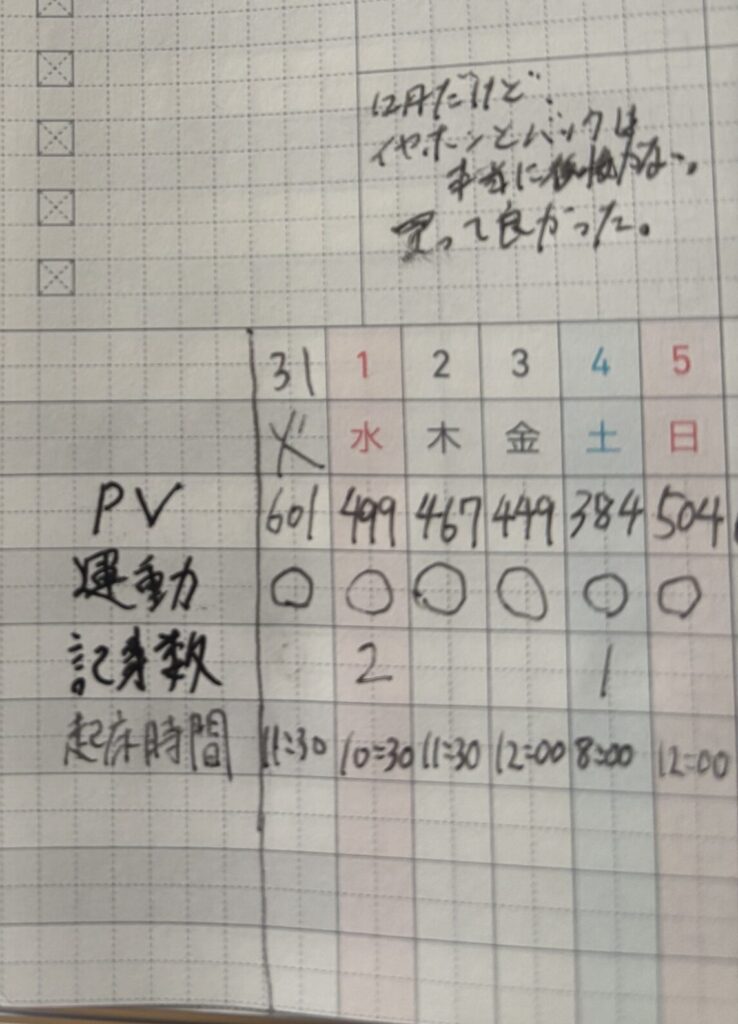 12月だけど、
イヤホンとバックは
本当に後悔がない。
買って良かった。
31 1 2 3 4 5
火 水 木 金 土 日
PV 601 499 467 449 384 504
運動 ○ ○ ○ ○ ○ ○
記事数 2 1
起床時間 11:30 10:30 11:30 12:00 8:00 12:00